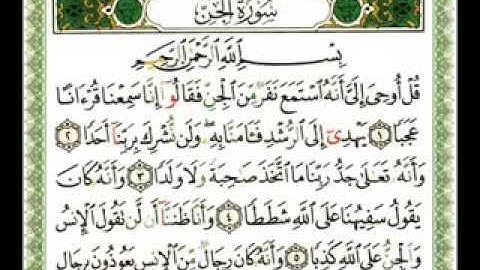 سُورَةُ الجِنّ
بِسْمِ اللَّهِ الرَّحْمَٰنِ الرَّحِيمِ
قُلْ أُوحِىَ إِلَىَّ أَنَّهُ ٱسْتَمَعَ نَفَرٌ مِّنَ ٱلْجِنِّ فَقَالُوٓا۟ إِنَّا سَمِعْنَا قُرْءَانًا
عَجَبًا ۝١ يَهْدِىٓ إِلَى ٱلرُّشْدِ فَـَٔامَنَّا بِهِۦ وَلَن نُّشْرِكَ بِرَبِّنَآ أَحَدًا ۝٢
وَأَنَّهُۥ تَعَٰلَىٰ جَدُّ رَبِّنَا مَا ٱتَّخَذَ صَٰحِبَةً وَلَا وَلَدًا ۝٣ وَأَنَّهُۥ كَانَ
يَقُولُ سَفِيهُنَا عَلَى ٱللَّهِ شَطَطًا ۝٤ وَأَنَّا ظَنَنَّآ أَن لَّن تَقُولَ ٱلْإِنسُ
وَٱلْجِنُّ عَلَى ٱللَّهِ كَذِبًا ۝٥ وَأَنَّهُۥ كَانَ رِجَالٌ مِّنَ ٱلْإِنسِ يَعُوذُونَ بِرِجَالٍ